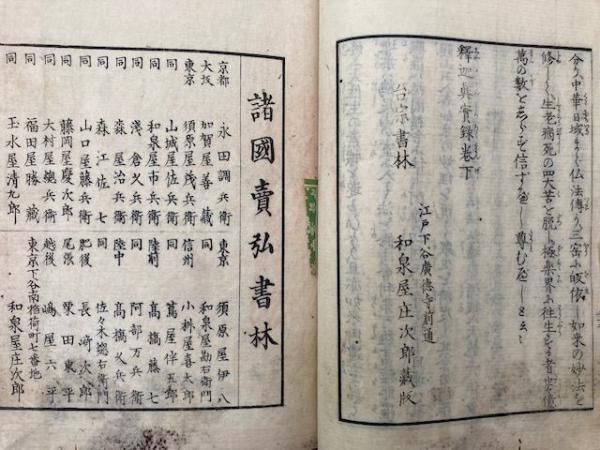 今又中華日域から仏法傳り三寳に皈依し如来の妙法を
修しく生老病死の四大苦を脱し極楽界に往生する者
萬の数をしらず信ずべし尊むべし
釋迦眞實録巻下
江戸下谷廣徳寺前通
台宗書林
和泉屋庄次郎藏版
諸國賣弘書林
京都 永田調兵衛
大坂 加賀屋善藏
東京 須原屋茂兵衛
同 山城屋佐兵衛
同 和泉屋市兵衛
同 淺倉久兵衛
同 森屋治兵衛
同 森江佐七
同 山口屋藤兵衛
同 藤岡屋慶次郎
同 大村屋總兵衛
同 福田屋勝藏
同 玉水屋清九郎
東京 須原屋伊八
同 和泉屋勘右衛門
信州 小林屋喜太郎
同 蔦屋伴五郎
陸前 髙橋藤七
同 阿部万兵衛
陸中 髙橋久兵衛
同 佐々木總右衛門
肥後 長﨑次郎
尾張 栗田東平
越後 嶋屋六平
東京下谷南稲荷町七番地
和泉屋庄次郎